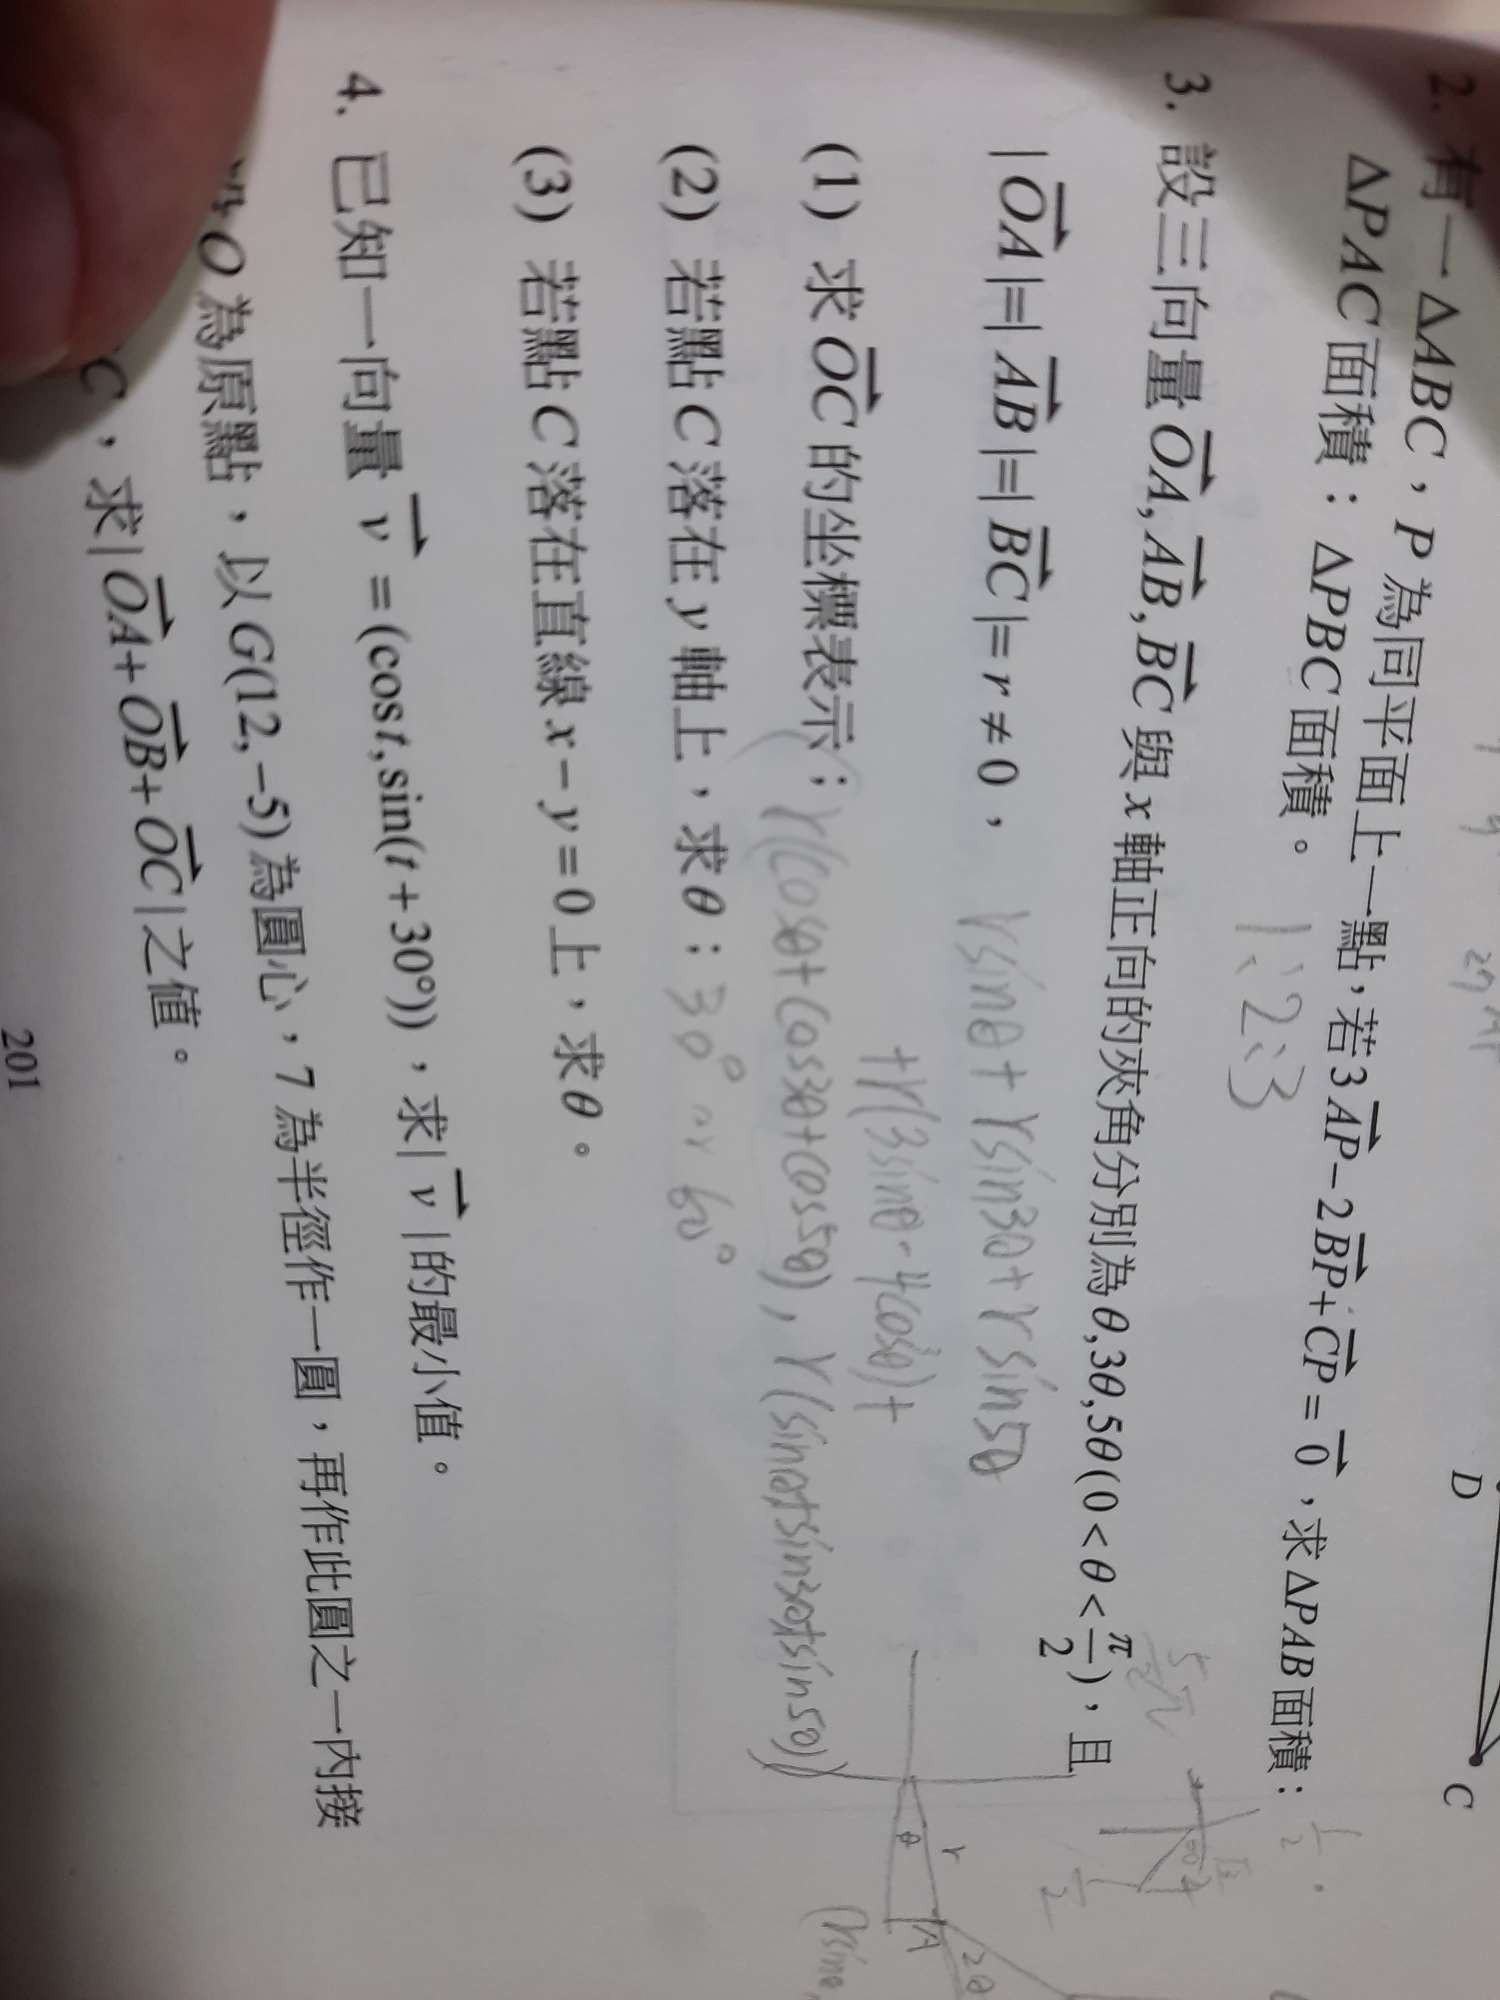 2. 有一 ΔABC，P 為同平面上一點，若 3AP⃗ − 2BP⃗ + CP⃗ = 0⃗，求 ΔPAB 面積：
ΔPAC 面積：ΔPBC 面積。
1:2:3
3. 設三向量 OA⃗, AB⃗, BC⃗ 與 x 軸正向的夾角分別為 θ,3θ,5θ(0 < θ < π/2)，且
|OA⃗|=|AB⃗|=|BC⃗|= r ≠ 0，
rsinθ + rsin3θ + rsin5θ
+r(3sinθ-4cos³θ)+
(1) 求 OC⃗ 的坐標表示；
r(cosθ+cos3θ+cos5θ), r(sinθ+sin3θ+sin5θ))
(2) 若點 C 落在 y 軸上，求 θ；
30° or 60°
(3) 若點 C 落在直線 x − y = 0 上，求 θ。
4. 已知一向量 v⃗ = (cos t, sin(t + 30°))，求| v⃗ |的最小值。
O 為原點，以 G(12,−5) 為圓心，7 為半徑作一圓，再作此圓之一內接
C，求|OA⃗ + OB⃗ + OC⃗|之值。
201
D
C
θ
r
A
2θ
(rsinθ,
5/2π
1/2